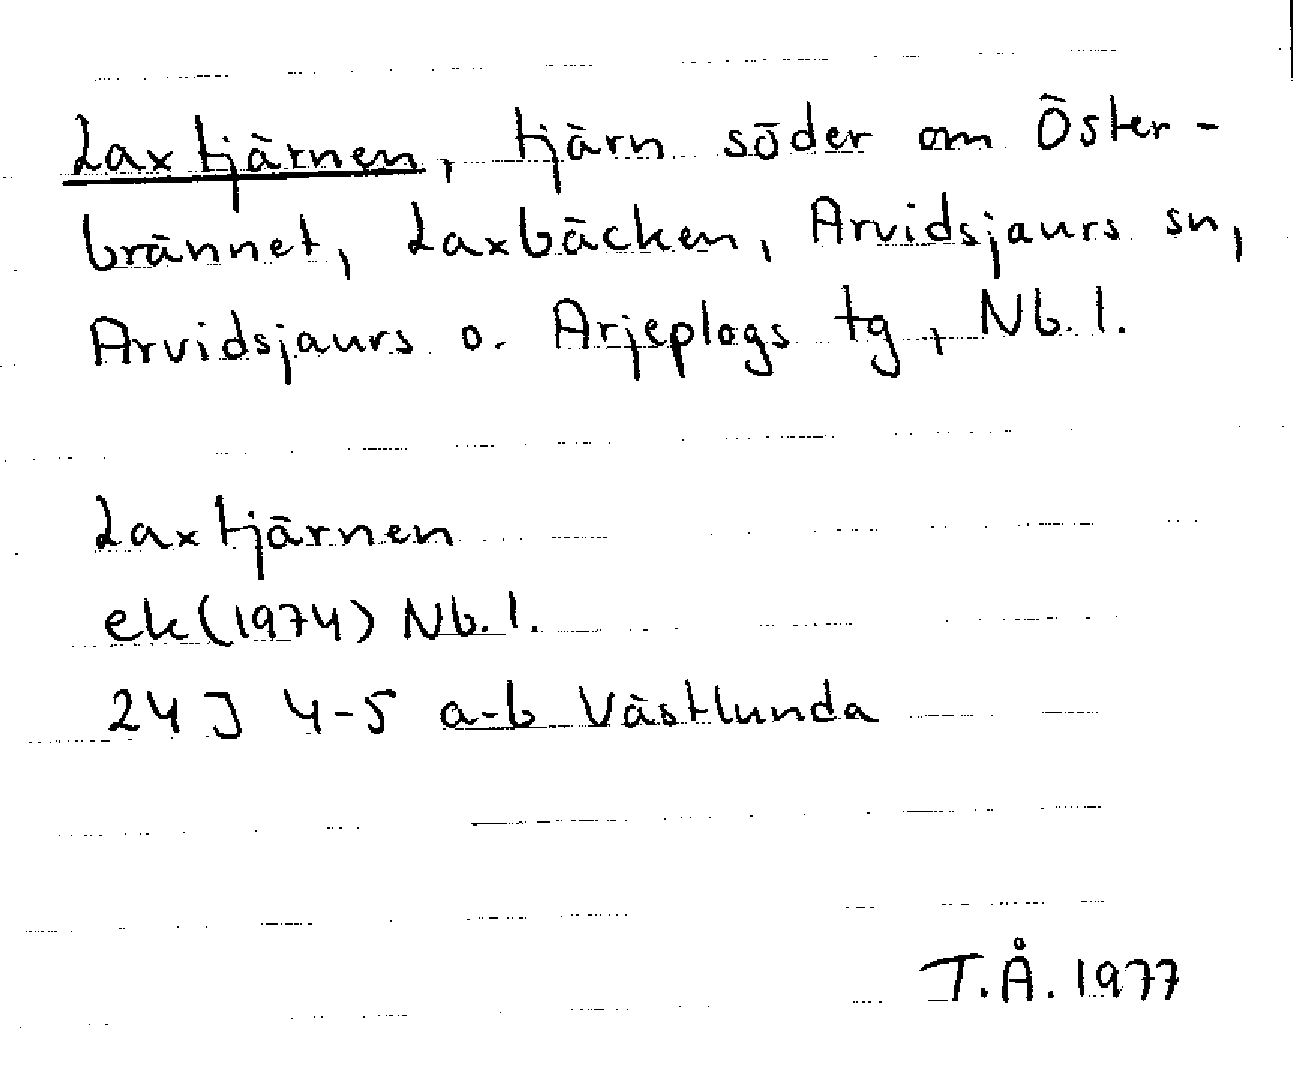 Laxtjärnen, tjärn söder om Öster-
brännet, Laxbäcken, Arvidsjaurs sn,
Arvidsjaurs o. Arjeplogs tg, Nb. l.
Laxtjärnen
ek (1974) Nb. l.
24 J 4-5 a-b Västlunda
T.Å. 1977